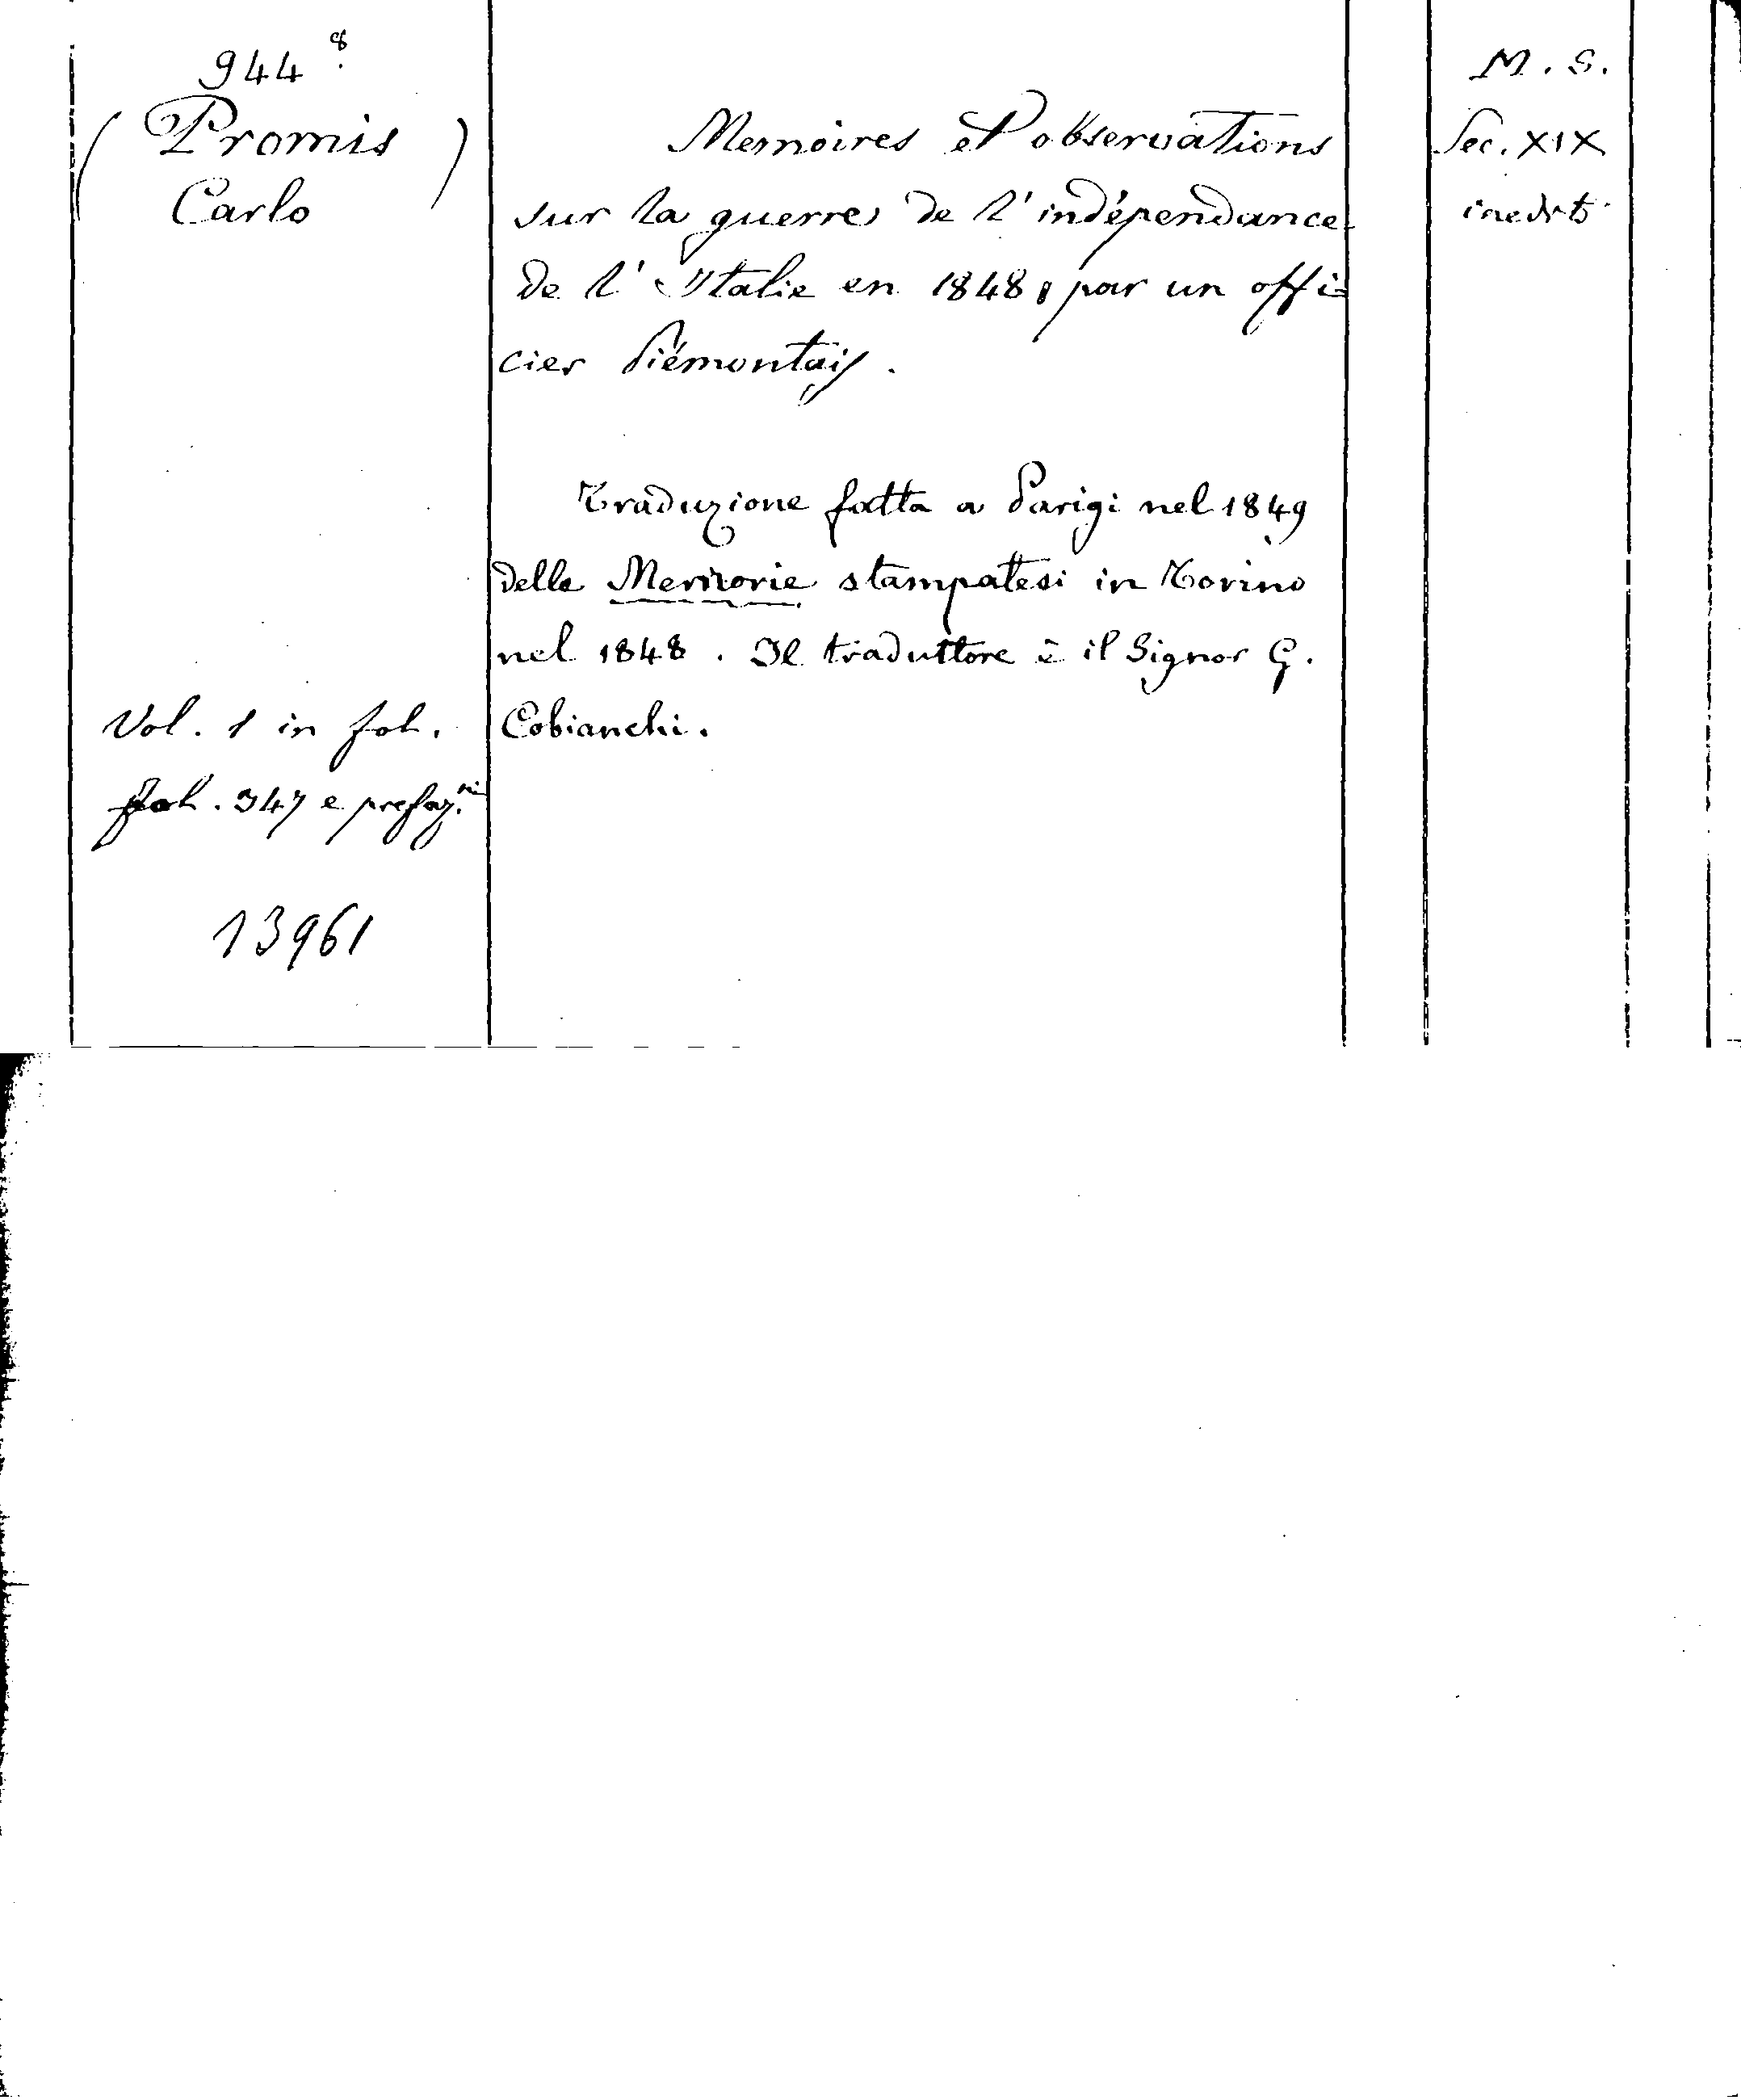 944 8.
(Promis)
Carlo
Memoires et observations
sur la guerre de l'indépendance
de l'Italie en 1848, par un offi=
cier Piémontais.
Traduzione fatta a Parigi nel 1849
delle Memorie stampatesi in Torino
nel 1848. Il traduttore è il Signor G.
Cobianchi.
Vol. 1 in fol.
fol. 347 e prefaz.ni
13961
M. S.
Sec. XIX
inedito